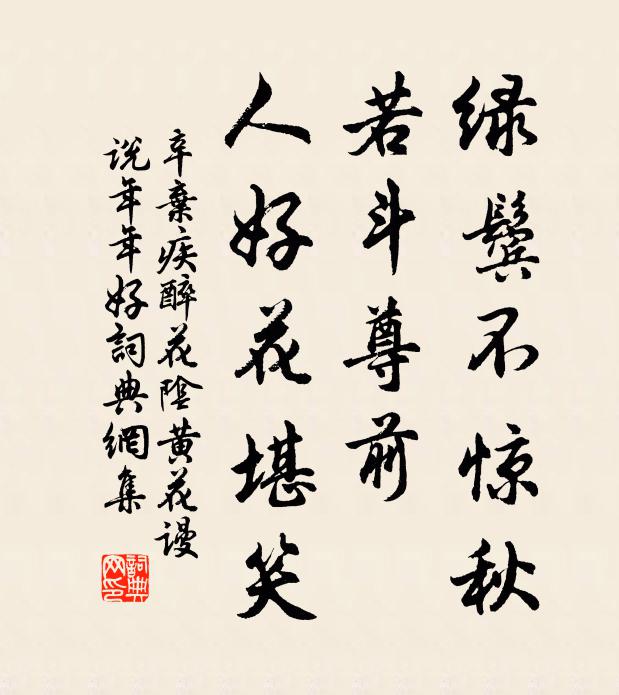 绿鬓不惊秋
若斗尊前
人好花堪笑
辛棄疾醉花陰黄花谩
说年年好詞典網集
詞典网印